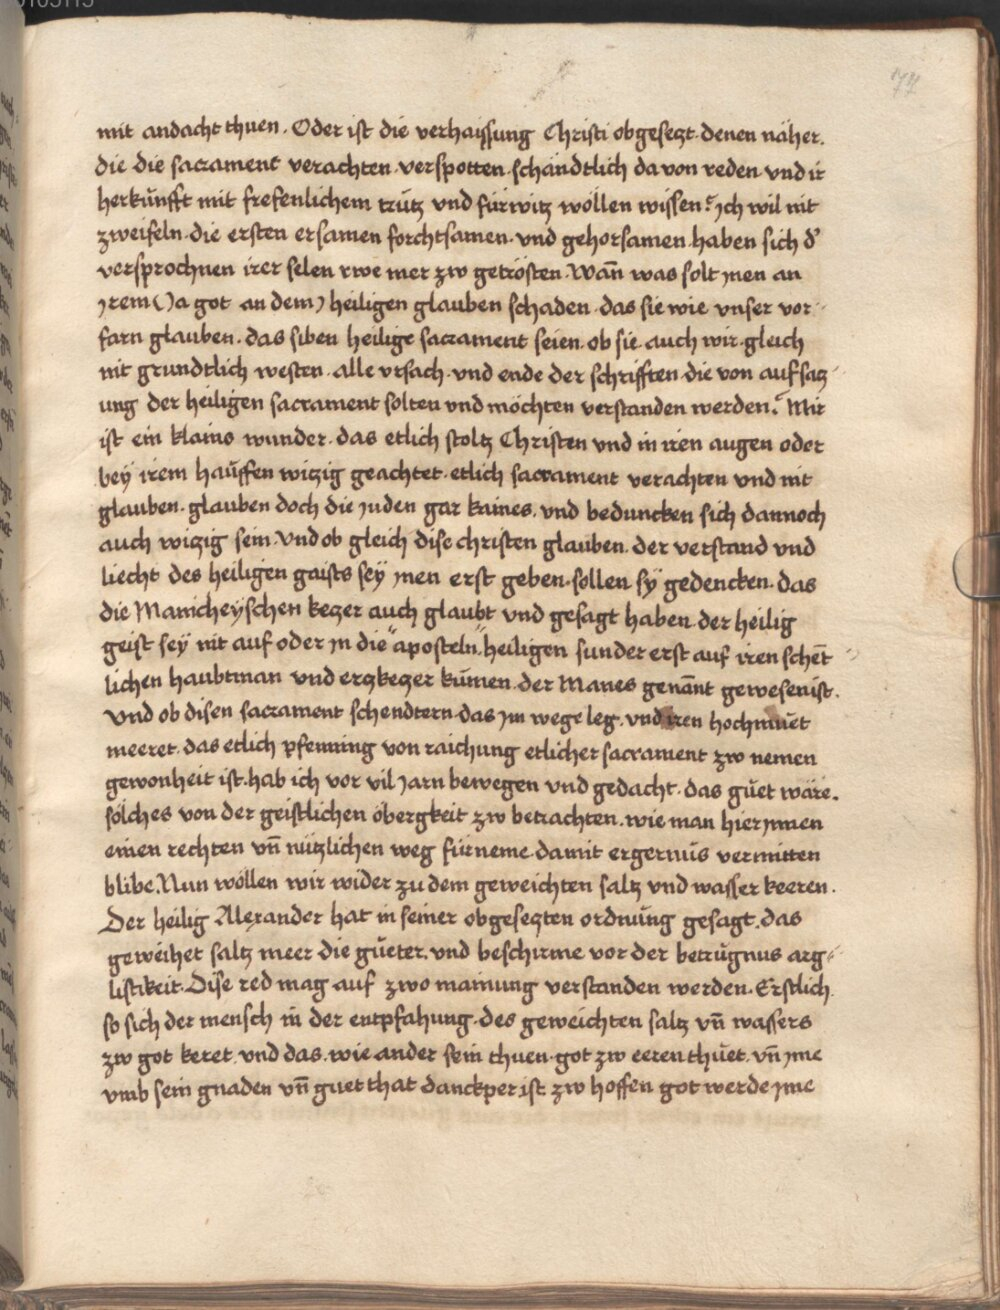 77
mit andacht thuen. Oder ist die verhaissung Christi obgesetzt. denen näher.
die die sacrament verachten. verspotten. schändtlich da von reden vnd ir
herkŭnfft mit frefenlichem trŭtz vnd fŭrwitz wöllen wissen? Jch wil nit
zweifeln. die ersten ersamen forchtsamen. vnd gehorsamen. haben sich d'
versprochnen irer selen rwe mer zw getrösten. Wan̄ was solt jnen an
jrem (Ja got an dem) heiligen glauben schaden. das sie wie vnser vor-
farn glauben. das siben heilige sacrament seien. ob sie. auch wir. gleich
nit grundtlich westen. alle vrsach. vnd ende der schrifften. die von aufsatz-
ung der heiligen sacrament solten vnd möchten verstanden werden? Mir
ist ein klains wunder. das etlich stoltz Christen vnd in iren augen oder
bey irem haŭffen witzig geachtet. etlich sacrament verachten vnd nit
glauben. glauben doch die juden gar kaines. vnd beduncken sich dannoch
auch witzig sein. vnd ob gleich dise christen glauben. der verstand vnd
liecht des heiligen gaists sey jnen erst geben. sollen sy gedencken. das
die Manicheyschen ketzer auch glaubt vnd gesagt haben. der heilig
geist sey nit auf oder jn die "aposteln" heiligen sunder erst auf iren schent-
lichen haubtman vnd ertzketzer kŭmen. der Manes genan̄t gewesen ist.
Vnd ob disen sacrament schendtern. das jm wege leg. vnd iren hochmŭet
meeret. das etlich pfenning von raichung etlicher sacrament zw nemen
gewonheit ist. hab ich vor vil jarn bewegen vnd gedacht. das gŭet wäre.
sölches von der geistlichen öbergkeit zw betrachten. wie man hierjnnen
einen rechten vn̄ nŭtzlichen weg fŭrneme. damit ergernŭs vermitten
blibe. Nun wöllen wir wider zu dem geweichten saltz vnd wasser keeren.
Der heilig Alexander hat in seiner obgesetzten ordnŭng gesagt. das
geweihet saltz meer die gŭeter. vnd beschirme vor der betrŭgnus arg-
listikeit. Dise red mag auf zwo mainung verstanden werden. Erstlich
so sich der mensch in der entpfahung. des geweichten saltz vn̄ wassers
zw got keret. vnd das. wie ander sein thuen. got zw eeren thŭet. vn̄ jme
vmb sein gnaden vn̄ guetthat danckper ist. zw hoffen got werde jme